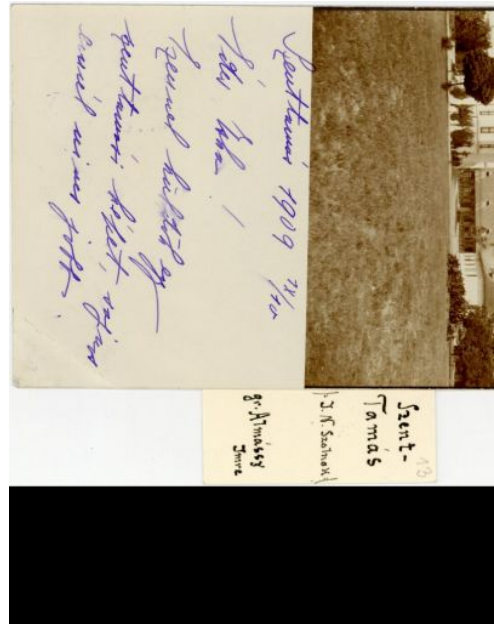 Szenttamás 1909 IX/20
Édes Elza!
Ezennel küldök egy
szenttamási képet, sajnos
ennél nincs jobb.
13
Szent-
Tamás
(J. N. Szolnok)
gr. Almássy
Imre